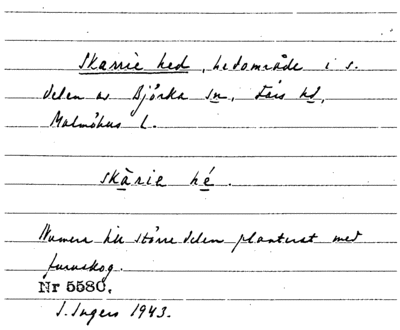 Skarrie hed, hedområde i s.
delen av Björka sn, Färs hd,
Malmöhus l.
skàrie hé.
Numera till större delen planterat med
furuskog.
Nr 5580.
I. Ingers 1943.